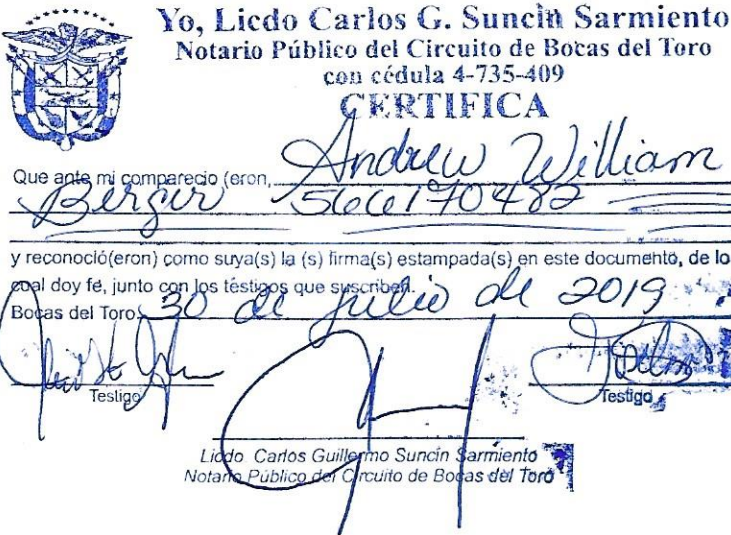 Yo, Licdo Carlos G. Suncin Sarmiento
Notario Público del Circuito de Bocas del Toro
con cédula 4-735-409
CERTIFICA
Que ante mi comparecio (eron, Andrew William
Berger 566170482
y reconoció(eron) como suya(s) la (s) firma(s) estampada(s) en este documento, de lo
cual doy fé, junto con los téstigos que suscriben.
Bocas del Toro 30 de julio de 2019
Testigo Testigo
Licdo Carlos Guillermo Suncin Sarmiento
Notario Público del Circuito de Bocas del Toro